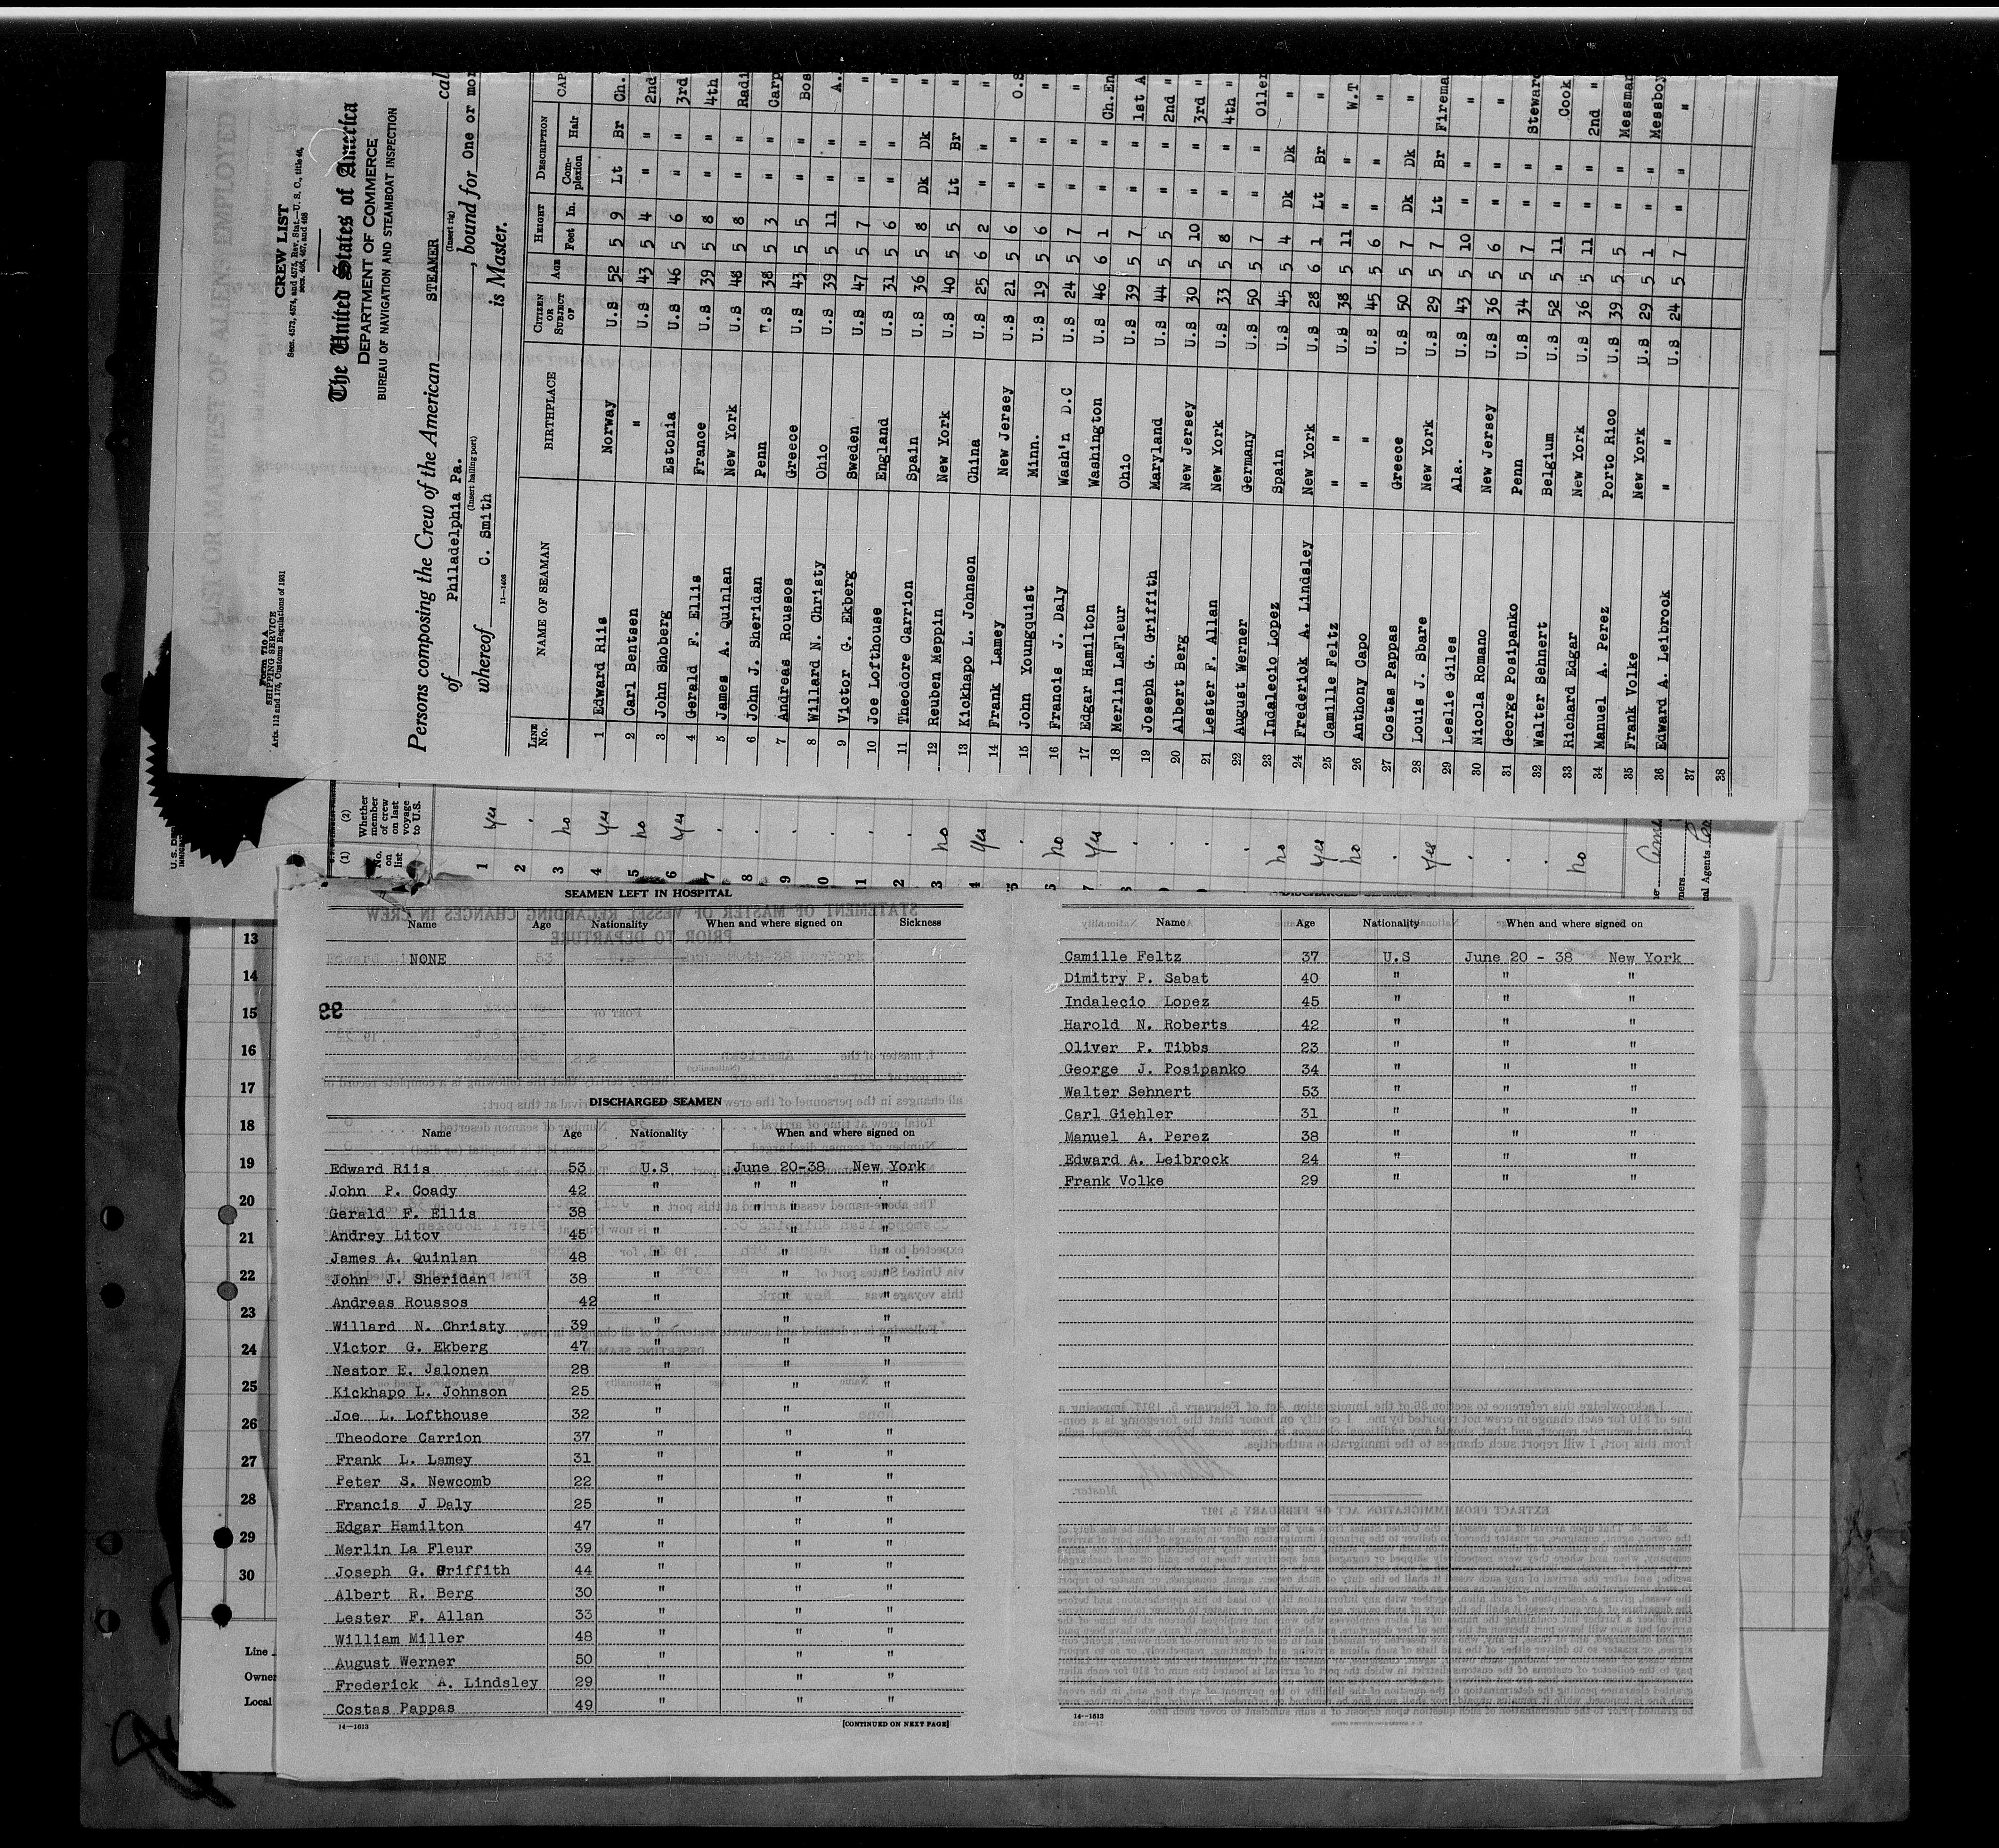 Form 710 A
SHIPPING SERVICE
Arts. 113 and 173, Customs Regulations of 1931
CREW LIST
Secs. 4573, 4574, and 4575, Rev. Stat.—U. S. C., title 46,
secs. 466, 467, and 468
The United States of America
DEPARTMENT OF COMMERCE
BUREAU OF NAVIGATION AND STEAMBOAT INSPECTION
Persons composing the Crew of the American STEAMER cal
(Insert rig)
of Philadelphia Pa. , bound for One or mor
(Insert hailing port)
whereof C. Smith is Master.
11—1408
LINE No. NAME OF SEAMAN BIRTHPLACE CITIZEN OR SUBJECT OF AGE HEIGHT Feet In. DESCRIPTION Complexion Hair CAP
1 Edward Riis Norway U.S 52 5 9 Lt Br Ch.
2 Carl Bentsen " U.S 43 5 4 " " 2nd
3 John Shoberg Estonia U.S 46 5 6 " " 3rd
4 Gerald F. Ellis France U.S 39 5 8 " " 4th
5 James A. Quinlan New York U.S 48 5 8 " " Radi
6 John J. Sheridan Penn U.S 38 5 3 " " Carp
7 Andreas Roussos Greece U.S 43 5 5 " " Bos
8 Willard N. Christy Ohio U.S 39 5 11 " " A.
9 Victor G. Ekberg Sweden U.S 47 5 7 " " "
10 Joe Lofthouse England U.S 31 5 6 " " "
11 Theodore Carrion Spain U.S 36 5 8 Dk Dk "
12 Reuben Meppin New York U.S 40 5 5 Lt Br "
13 Kickhapo L. Johnson China U.S 25 6 2 " " "
14 Frank Lamey New Jersey U.S 21 5 6 " " O.S
15 John Youngquist Minn. U.S 19 5 6 " " "
16 Francis J. Daly Wash'n D.C U.S 24 5 7 " " "
17 Edgar Hamilton Washington U.S 46 6 1 " " Ch.En
18 Merlin LaFleur Ohio U.S 39 5 7 " " 1st A
19 Joseph G. Griffith Maryland U.S 44 5 5 " " 2nd "
20 Albert Berg New Jersey U.S 30 5 10 " " 3rd "
21 Lester F. Allan New York U.S 33 5 8 " " 4th "
22 August Werner Germany U.S 50 5 7 " " Oiler
23 Indalecio Lopez Spain U.S 45 5 4 Dk Dk "
24 Frederick A. Lindsley New York U.S 28 6 1 Lt Br "
25 Camille Feltz " U.S 38 5 11 " " W.T
26 Anthony Capo " U.S 45 5 6 " " "
27 Costas Pappas Greece U.S 50 5 7 Dk Dk "
28 Louis J. Sbare New York U.S 29 5 7 Lt Br Firema
29 Leslie Giles Ala. U.S 43 5 10 " " "
30 Nicola Romano New Jersey U.S 36 5 6 " " "
31 George Posipanko Penn U.S 34 5 7 " " Steward
32 Walter Sehnert Belgium U.S 52 5 11 " " Cook
33 Richard Edgar New York U.S 36 5 11 " " 2nd "
34 Manuel A. Perez Porto Rico U.S 39 5 5 " " Messman
35 Frank Volke New York U.S 29 5 1 " " Messboy
36 Edward A. Leibrock " " U.S 24 5 7 " " "
37
38
(1) No. on list
(2) Whether member of crew on last voyage to U.S.
1 yes
2 .
3 no
4 yes
5 no
6 yes
7 .
8 .
9 .
10 .
11 .
SEAMEN LEFT IN HOSPITAL
Name Age Nationality When and where signed on Sickness
NONE
DISCHARGED SEAMEN
Name Age Nationality When and where signed on
Edward Riis 53 U.S June 20-38 New York
John P. Coady 42 " " " "
Gerald F. Ellis 38 " " " "
Andrey Litov 45 " " "
James A. Quinlan 48 " " "
John J. Sheridan 38 " " "
Andreas Roussos 42 " " "
Willard N. Christy 39 " " "
Victor G. Ekberg 47 " " "
Nestor E. Jalonen 28 " " "
Kickhapo L. Johnson 25 " " "
Joe L. Lofthouse 32 " " "
Theodore Carrion 37 " " "
Frank L. Lamey 31 " " "
Peter S. Newcomb 22 " " "
Francis J Daly 25 " " "
Edgar Hamilton 47 " " "
Merlin La Fleur 39 " " "
Joseph G. Griffith 44 " " "
Albert R. Berg 30 " " "
Lester F. Allan 33 " " "
William Miller 48 " " "
August Werner 50 " " "
Frederick A. Lindsley 29 " " "
Costas Pappas 49 " " "
14—1613
[CONTINUED ON NEXT PAGE]
DISCHARGED SEAMEN
Name Age Nationality When and where signed on
Camille Feltz 37 U.S June 20 - 38 New York
Dimitry P. Sabat 40 " " "
Indalecio Lopez 45 " " "
Harold N. Roberts 42 " " "
Oliver P. Tibbs 23 " " "
George J. Posipanko 34 " " "
Walter Sehnert 53 " " "
Carl Giehler 31 " " "
Manuel A. Perez 38 " " "
Edward A. Leibrock 24 " " "
Frank Volke 29 " " "
14—1613
13
14
15
16
17
18
19
20
21
22
23
24
25
26
27
28
29
30
Line
Owner
Local